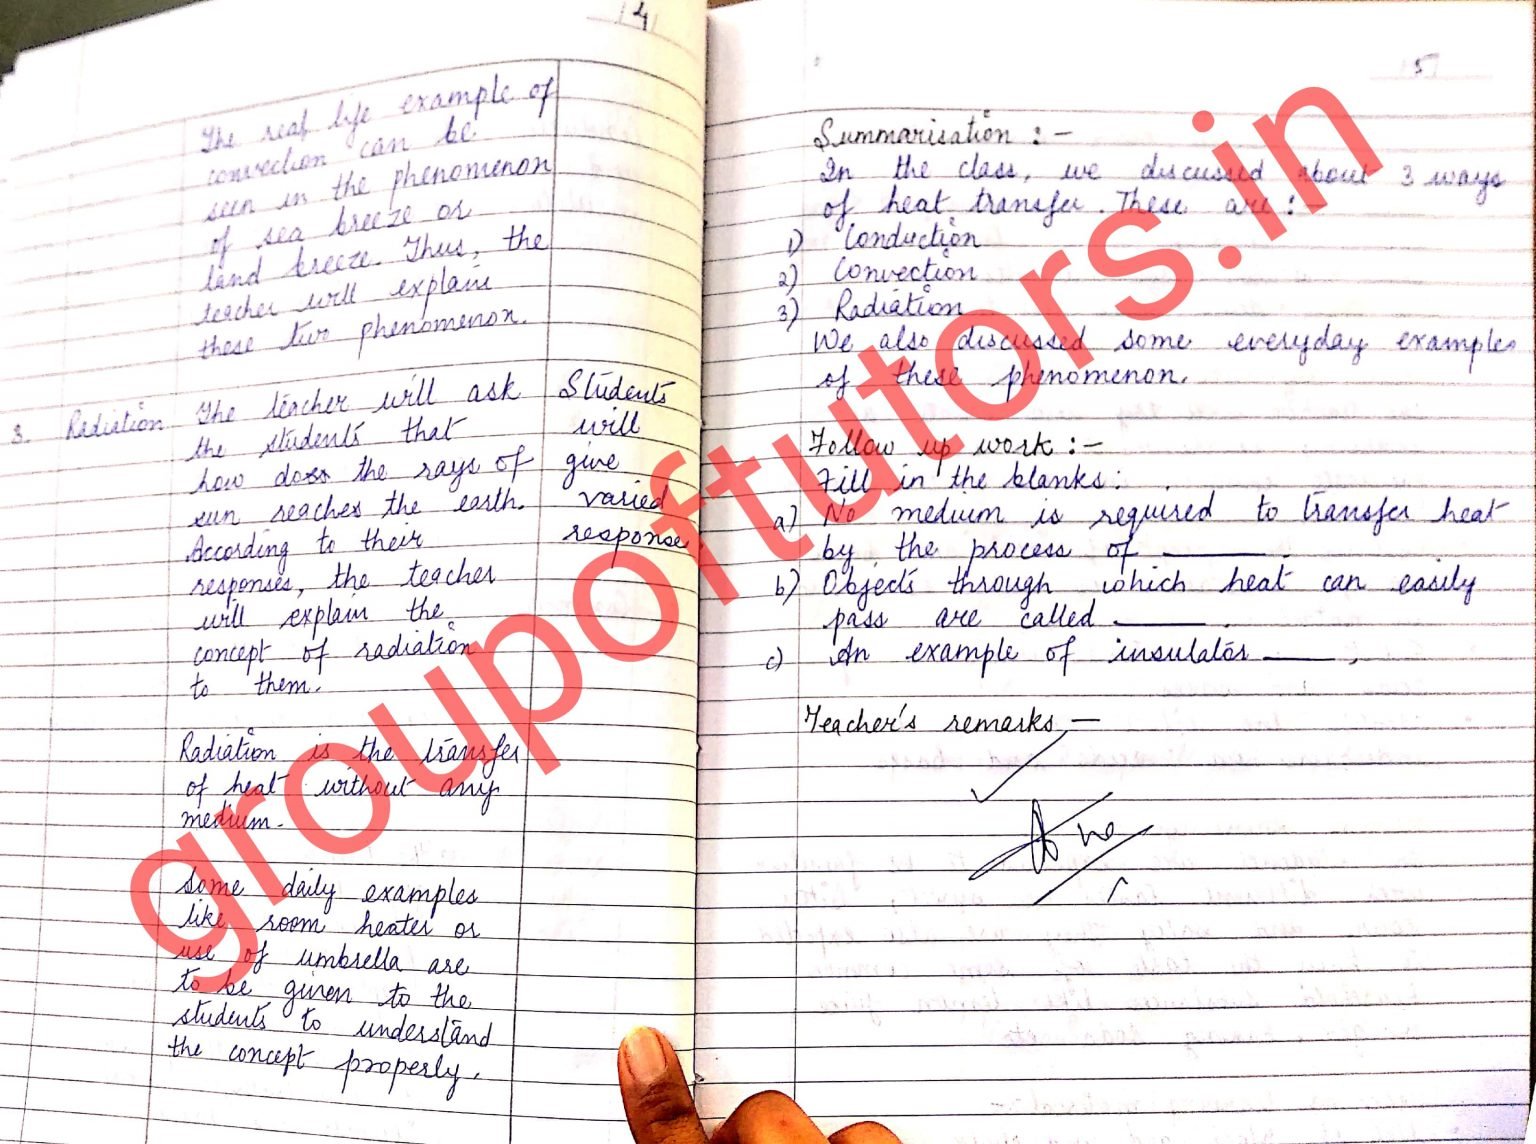 4
The real life example of
convection can be
seen in the phenomenon
of sea breeze or
land breeze. Thus, the
teacher will explain
these two phenomenon.
3. Radiation
The teacher will ask
the students that
how does the rays of
sun reaches the earth.
According to their
responses, the teacher
will explain the
concept of radiation
to them.
Radiation is the transfer
of heat without any
medium.
Some daily examples
like room heater or
use of umbrella are
to be given to the
students to understand
the concept properly.
Students
will
give
varied
response
5
Summarisation :-
In the class, we discussed about 3 ways
of heat transfer. These are :
1) Conduction
2) Convection
3) Radiation
We also discussed some everyday examples
of these phenomenon.
Follow up work :-
Fill in the blanks :
a) No medium is required to transfer heat
by the process of ______.
b) Objects through which heat can easily
pass are called ______.
c) An example of insulator ______.
Teacher's remarks -
groupoftutors.in